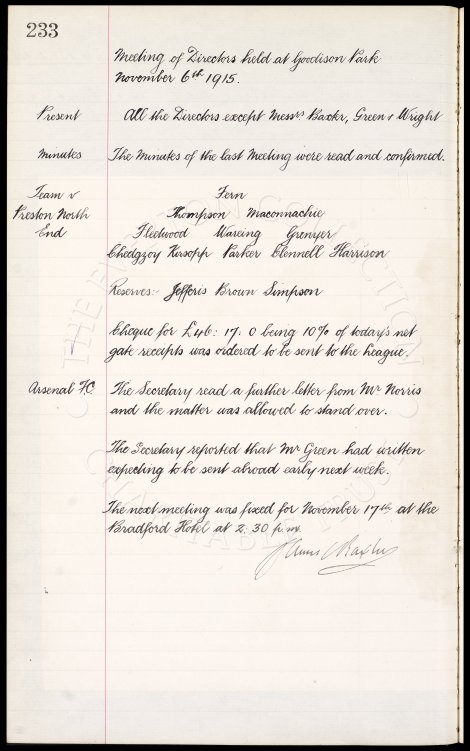 233
Meeting of Directors held at Goodison Park
November 6th 1915.
Present All the Directors except Messrs Baxter, Green & Wright
Minutes The Minutes of the last Meeting were read and confirmed.
Team v Fern
Preston North Thompson Maconnachie
End Fleetwood Wareing Grenyer
Chedgzoy Kirsopp Parker Clennell Harrison
Reserves:- Jefferis Brown Simpson
Cheque for £46:17.0 being 10% of today's net
gate receipts was ordered to be sent to the League.
Arsenal F.C. The Secretary read a further letter from Mr Norris
and the matter was allowed to stand over.
The Secretary reported that Mr Green had written
expecting to be sent abroad early next week.
The next meeting was fixed for November 17th at the
Bradford Hotel at 2.30 p.m.
THE EVERTON COLLECTION
CHARITABLE TRUST